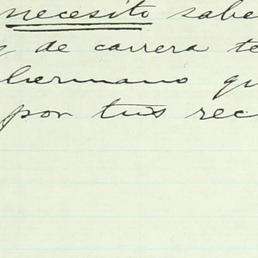 necesito sabe
de carrera te
hermano qu
por tus rec